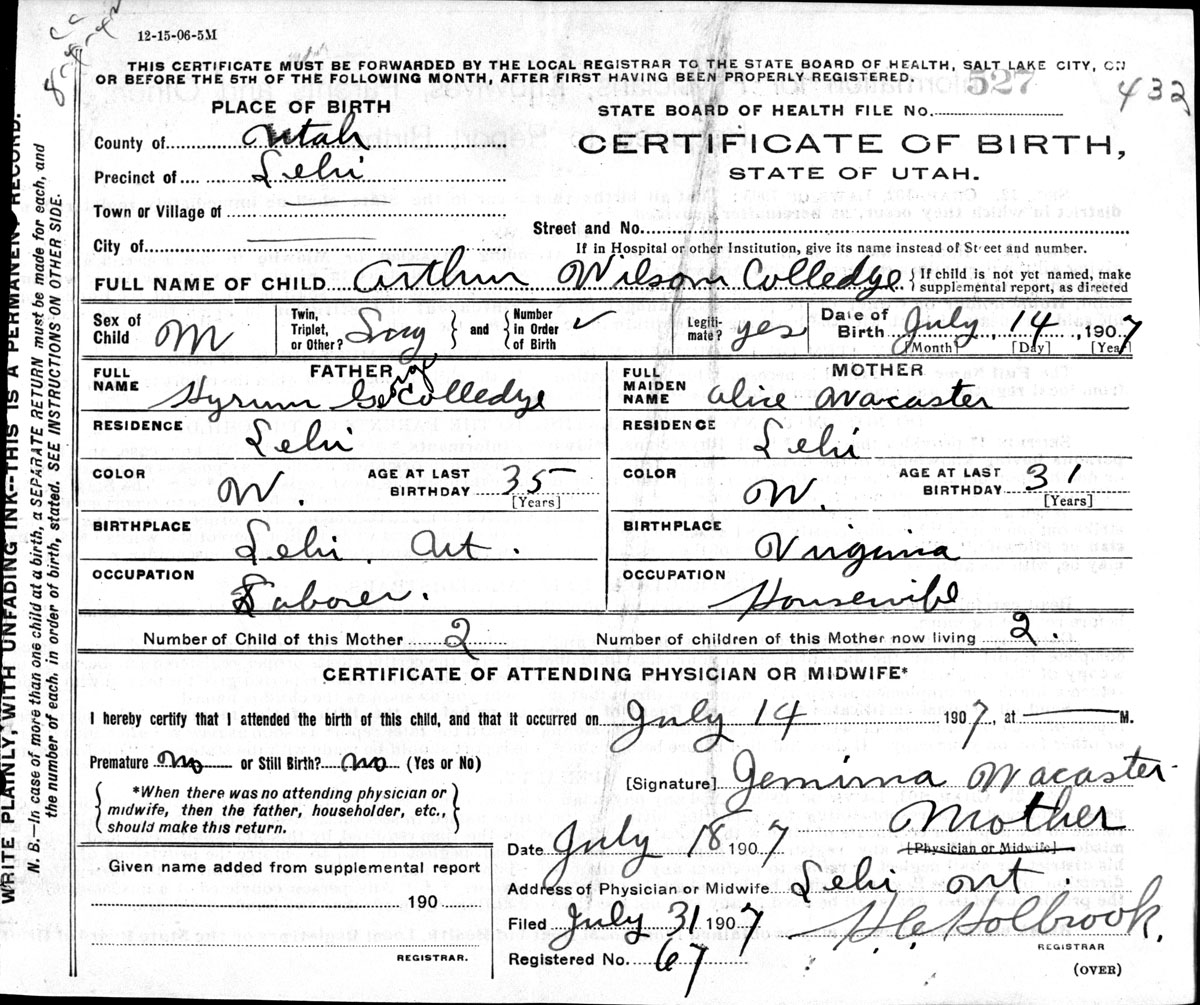 8-8-42
CC
12-15-06-5M
THIS CERTIFICATE MUST BE FORWARDED BY THE LOCAL REGISTRAR TO THE STATE BOARD OF HEALTH, SALT LAKE CITY, ON
OR BEFORE THE 5TH OF THE FOLLOWING MONTH, AFTER FIRST HAVING BEEN PROPERLY REGISTERED.
527
432
PLACE OF BIRTH
STATE BOARD OF HEALTH FILE No.
County of Utah
CERTIFICATE OF BIRTH,
Precinct of Lehi
STATE OF UTAH.
Town or Village of
Street and No.
City of
If in Hospital or other Institution, give its name instead of Street and number.
FULL NAME OF CHILD Arthur Wilson Colledge { If child is not yet named, make supplemental report, as directed
Sex of Child M
Twin, Triplet, or Other? Sng } and { Number in Order of Birth ✓
Legiti-mate? yes
Date of Birth July 14, 1907
[Month] [Day] [Year]
FATHER
FULL NAME Hyrum Colledge
RESIDENCE Lehi
COLOR W. AGE AT LAST BIRTHDAY 35
[Years]
BIRTHPLACE Lehi Ut.
OCCUPATION Laborer.
MOTHER
FULL MAIDEN NAME Alice Wacaster
RESIDENCE Lehi
COLOR W. AGE AT LAST BIRTHDAY 31
[Years]
BIRTHPLACE Virginia
OCCUPATION Housewife
Number of Child of this Mother 2 Number of children of this Mother now living 2.
CERTIFICATE OF ATTENDING PHYSICIAN OR MIDWIFE*
I hereby certify that I attended the birth of this child, and that it occurred on July 14 1907, at M.
Premature No or Still Birth? No (Yes or No)
[Signature] Jemima Wacaster
*When there was no attending physician or
midwife, then the father, householder, etc.,
should make this return.
Mother
[Physician or Midwife]
Date July 18 1907
Given name added from supplemental report
190
REGISTRAR.
Address of Physician or Midwife Lehi Ut.
Filed July 31 1907 H C Holbrook.
REGISTRAR
Registered No. 67
(OVER)
WRITE PLAINLY, WITH UNFADING INK--THIS IS A PERMANENT RECORD.
N. B.—In case of more than one child at a birth, a SEPARATE RETURN must be made for each, and
the number of each, in order of birth, stated. SEE INSTRUCTIONS ON OTHER SIDE.